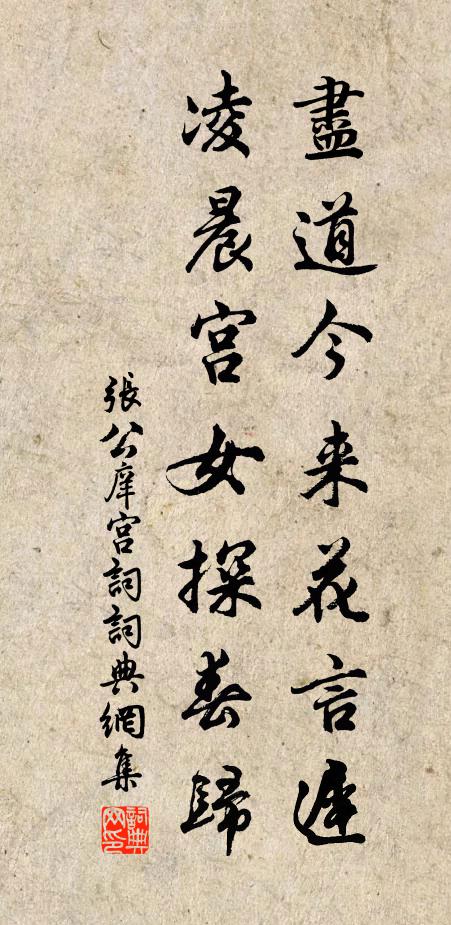 盡道今来花言遲
凌晨宫女探春歸
張公庠宫詞詞典網集
詞典网印